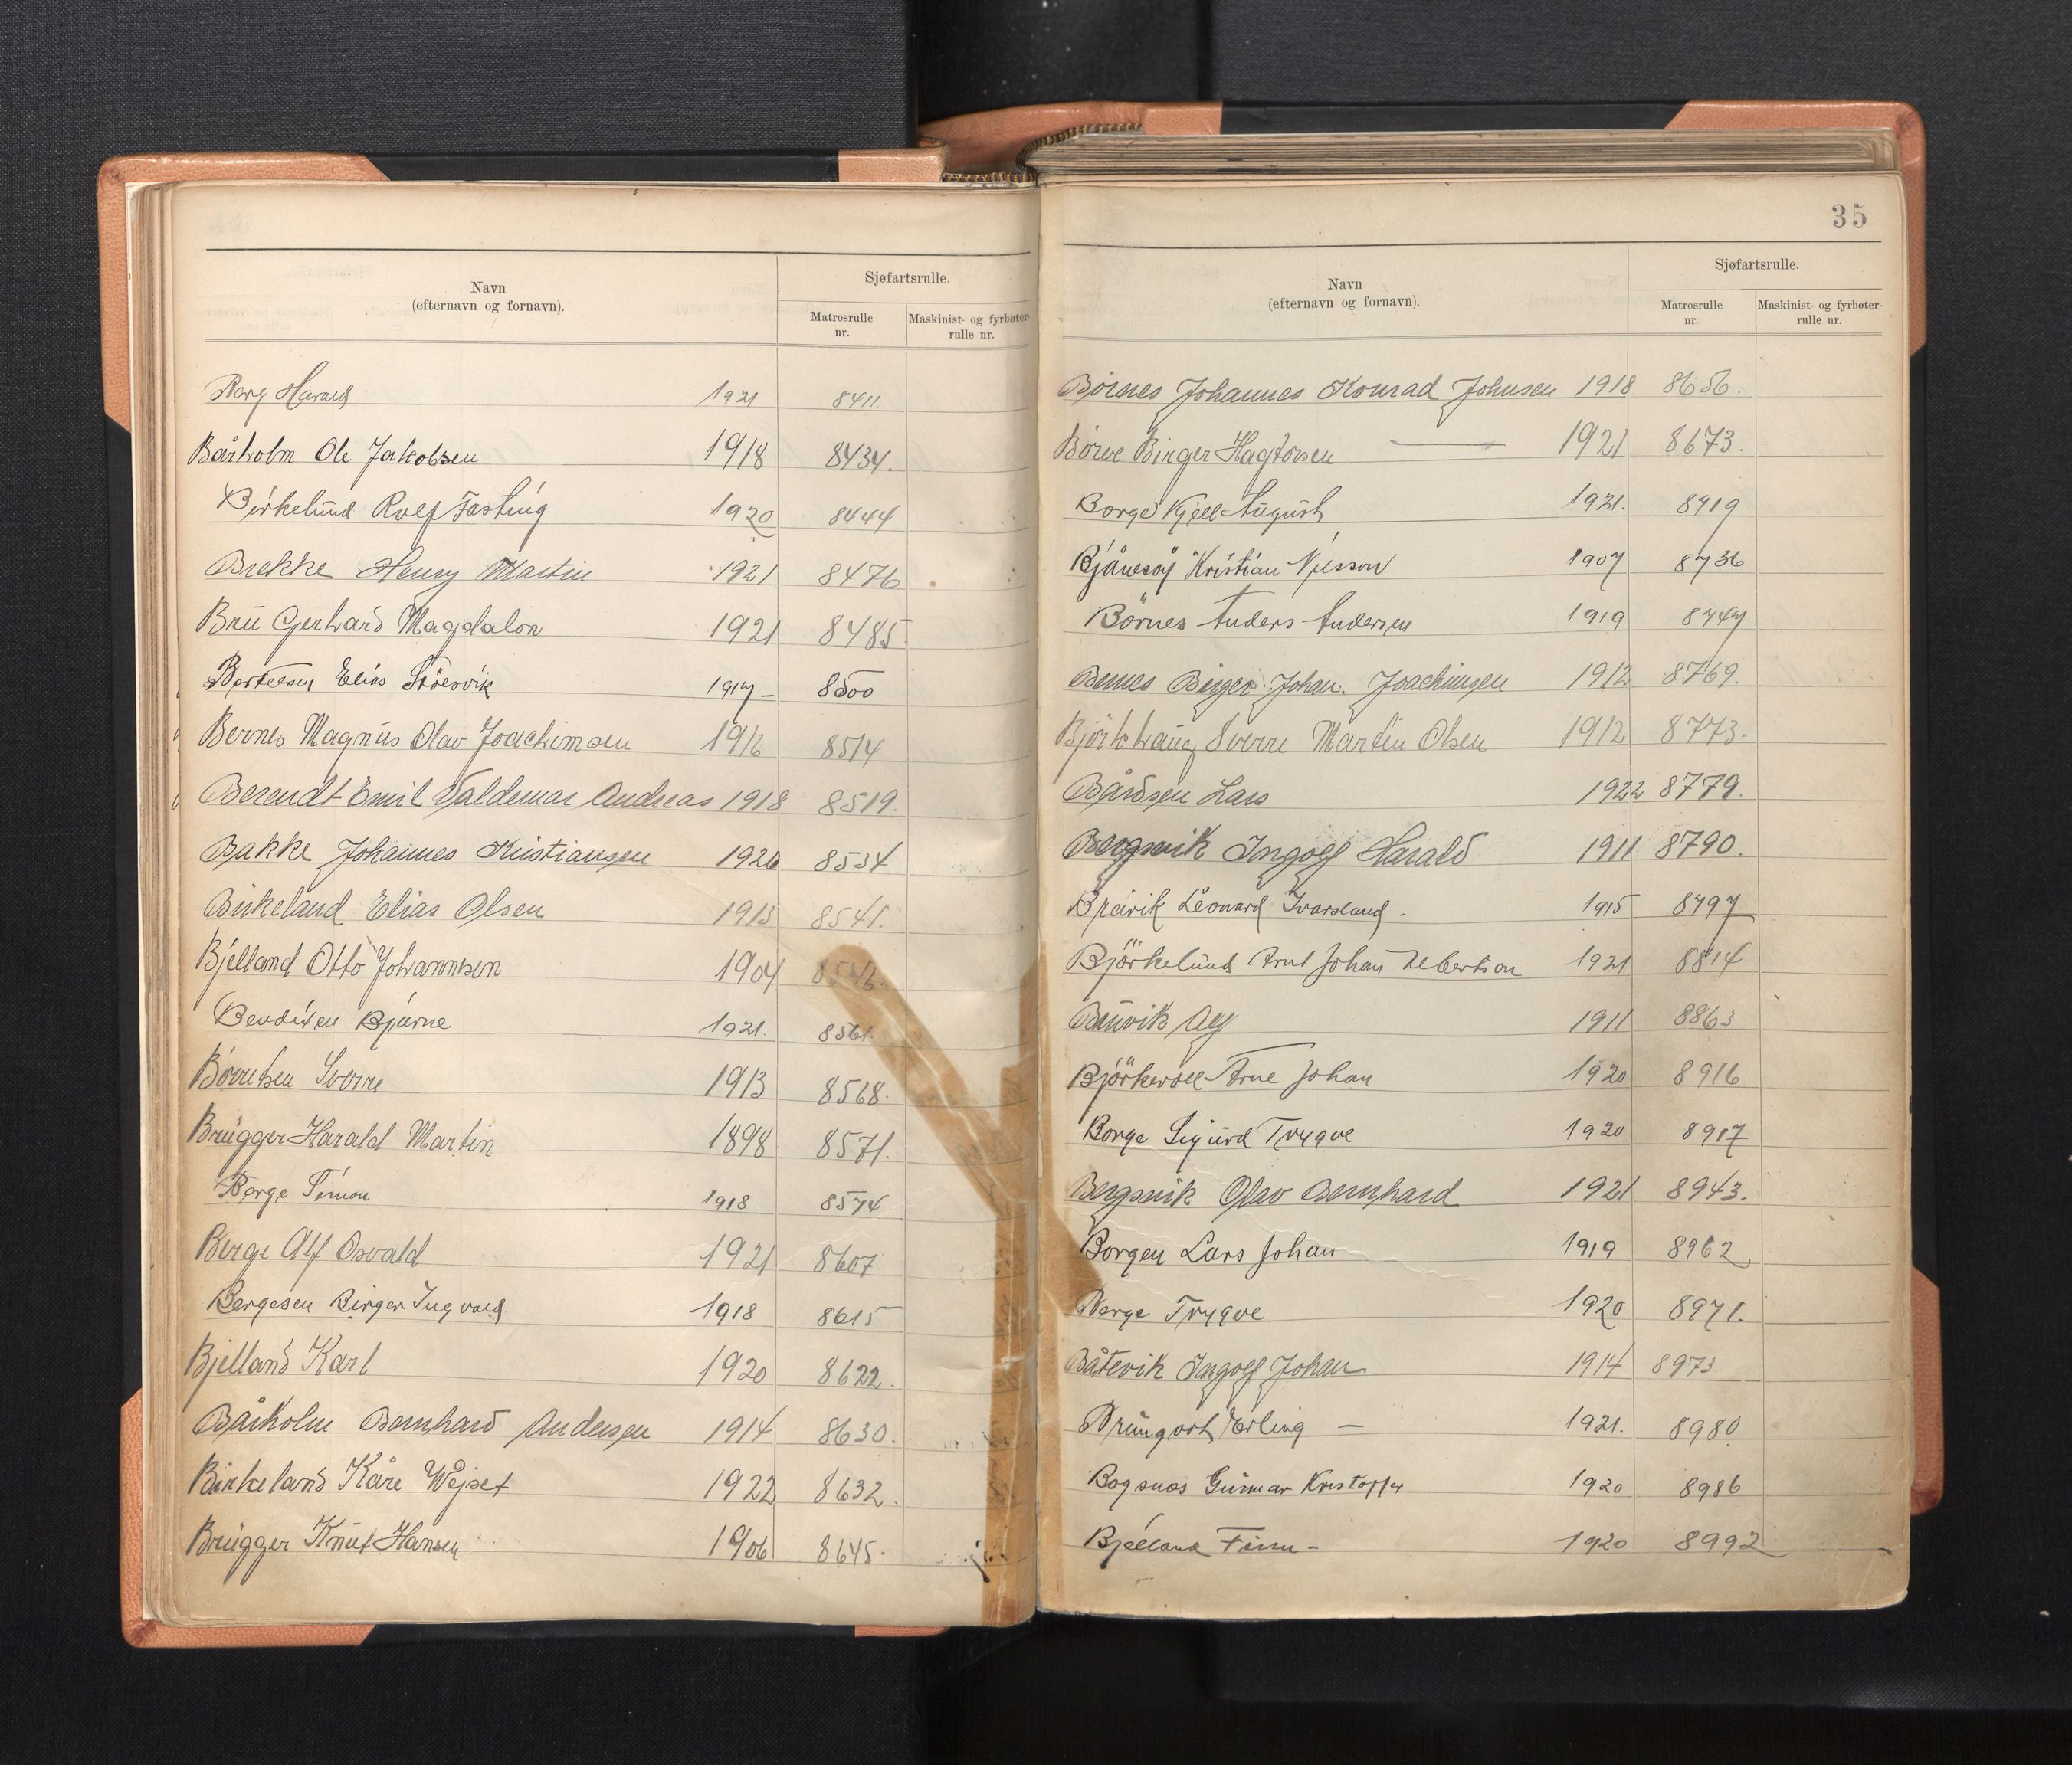 Navn
(efternavn og fornavn).
Sjøfartsrulle.
Matrosrulle
nr.
Maskinist- og fyrbøter-
rulle nr.
Harald 1921 8411
Bårholm Ole Jakobsen 1918 8434.
Birkelund Rolf Fasting 1920 8444
Brekke Henry Martin 1921 8476
Bru Gerhard Magdalon 1921 8485
Bertelsen Elias 1917 - 8500
Bernes Magnus Olav Joachimsen 1916 8514
Berendt Emil Valdemar Andreas 1918 8519.
Bakke Johannes Kristiansen 1920 8534
Birkeland Elias Olsen 1913 8541.
Bjelland Otto Johannesen 1904
Bendixen Bjarne 1921. 8561.
Børretsen Sverre 1913 8568.
Brügger Harald Martin 1898 8571.
Berge Simon 1918 8574
Berge Alf Osvald 1921 8607
Bergesen Birger Ingvald 1918 8615
Bjelland Karl 1920 8622.
Bårholm Bernhard Andersen 1914 8630.
Birkeland Kåre 1922 8632.
Brügger Knut Hansen 1906 8645.
35
Navn
(efternavn og fornavn).
Sjøfartsrulle.
Matrosrulle
nr.
Maskinist- og fyrbøter-
rulle nr.
Børnes Johannes Konrad Johnsen 1918 8656.
Børve Birger Hagtorsen 1921 8673.
Borge Kjell August 1921. 8719
Kristian 1907 8736
Börnes Anders Andersen 1919 8747
Birger Johan Joachimsen 1912 8769.
Björkhaug Sverre Martin Olsen 1912 8773.
Bårdsen Lars 1922 8779.
Bergsvik Ingolf Harald 1911 8790.
Breivik Leonard Ivarsland. 1915 8797
Björkelund Arnt Johan 1921 8814
Alf 1911 8863
Björkevoll Arne Johan 1920 8916
Borge Sigurd Trygve 1920 8917
Bergsvik Olav Bernhard 1921 8943.
Borgen Lars Johan 1919 8962
Berge Trygve 1920 8971.
Båtevik Ingolf Johan 1914 8973.
Erling — 1921. 8980
Bogsnes Gunnar Kristoffer 1920 8986
Bjelland Finn - 1920 8992